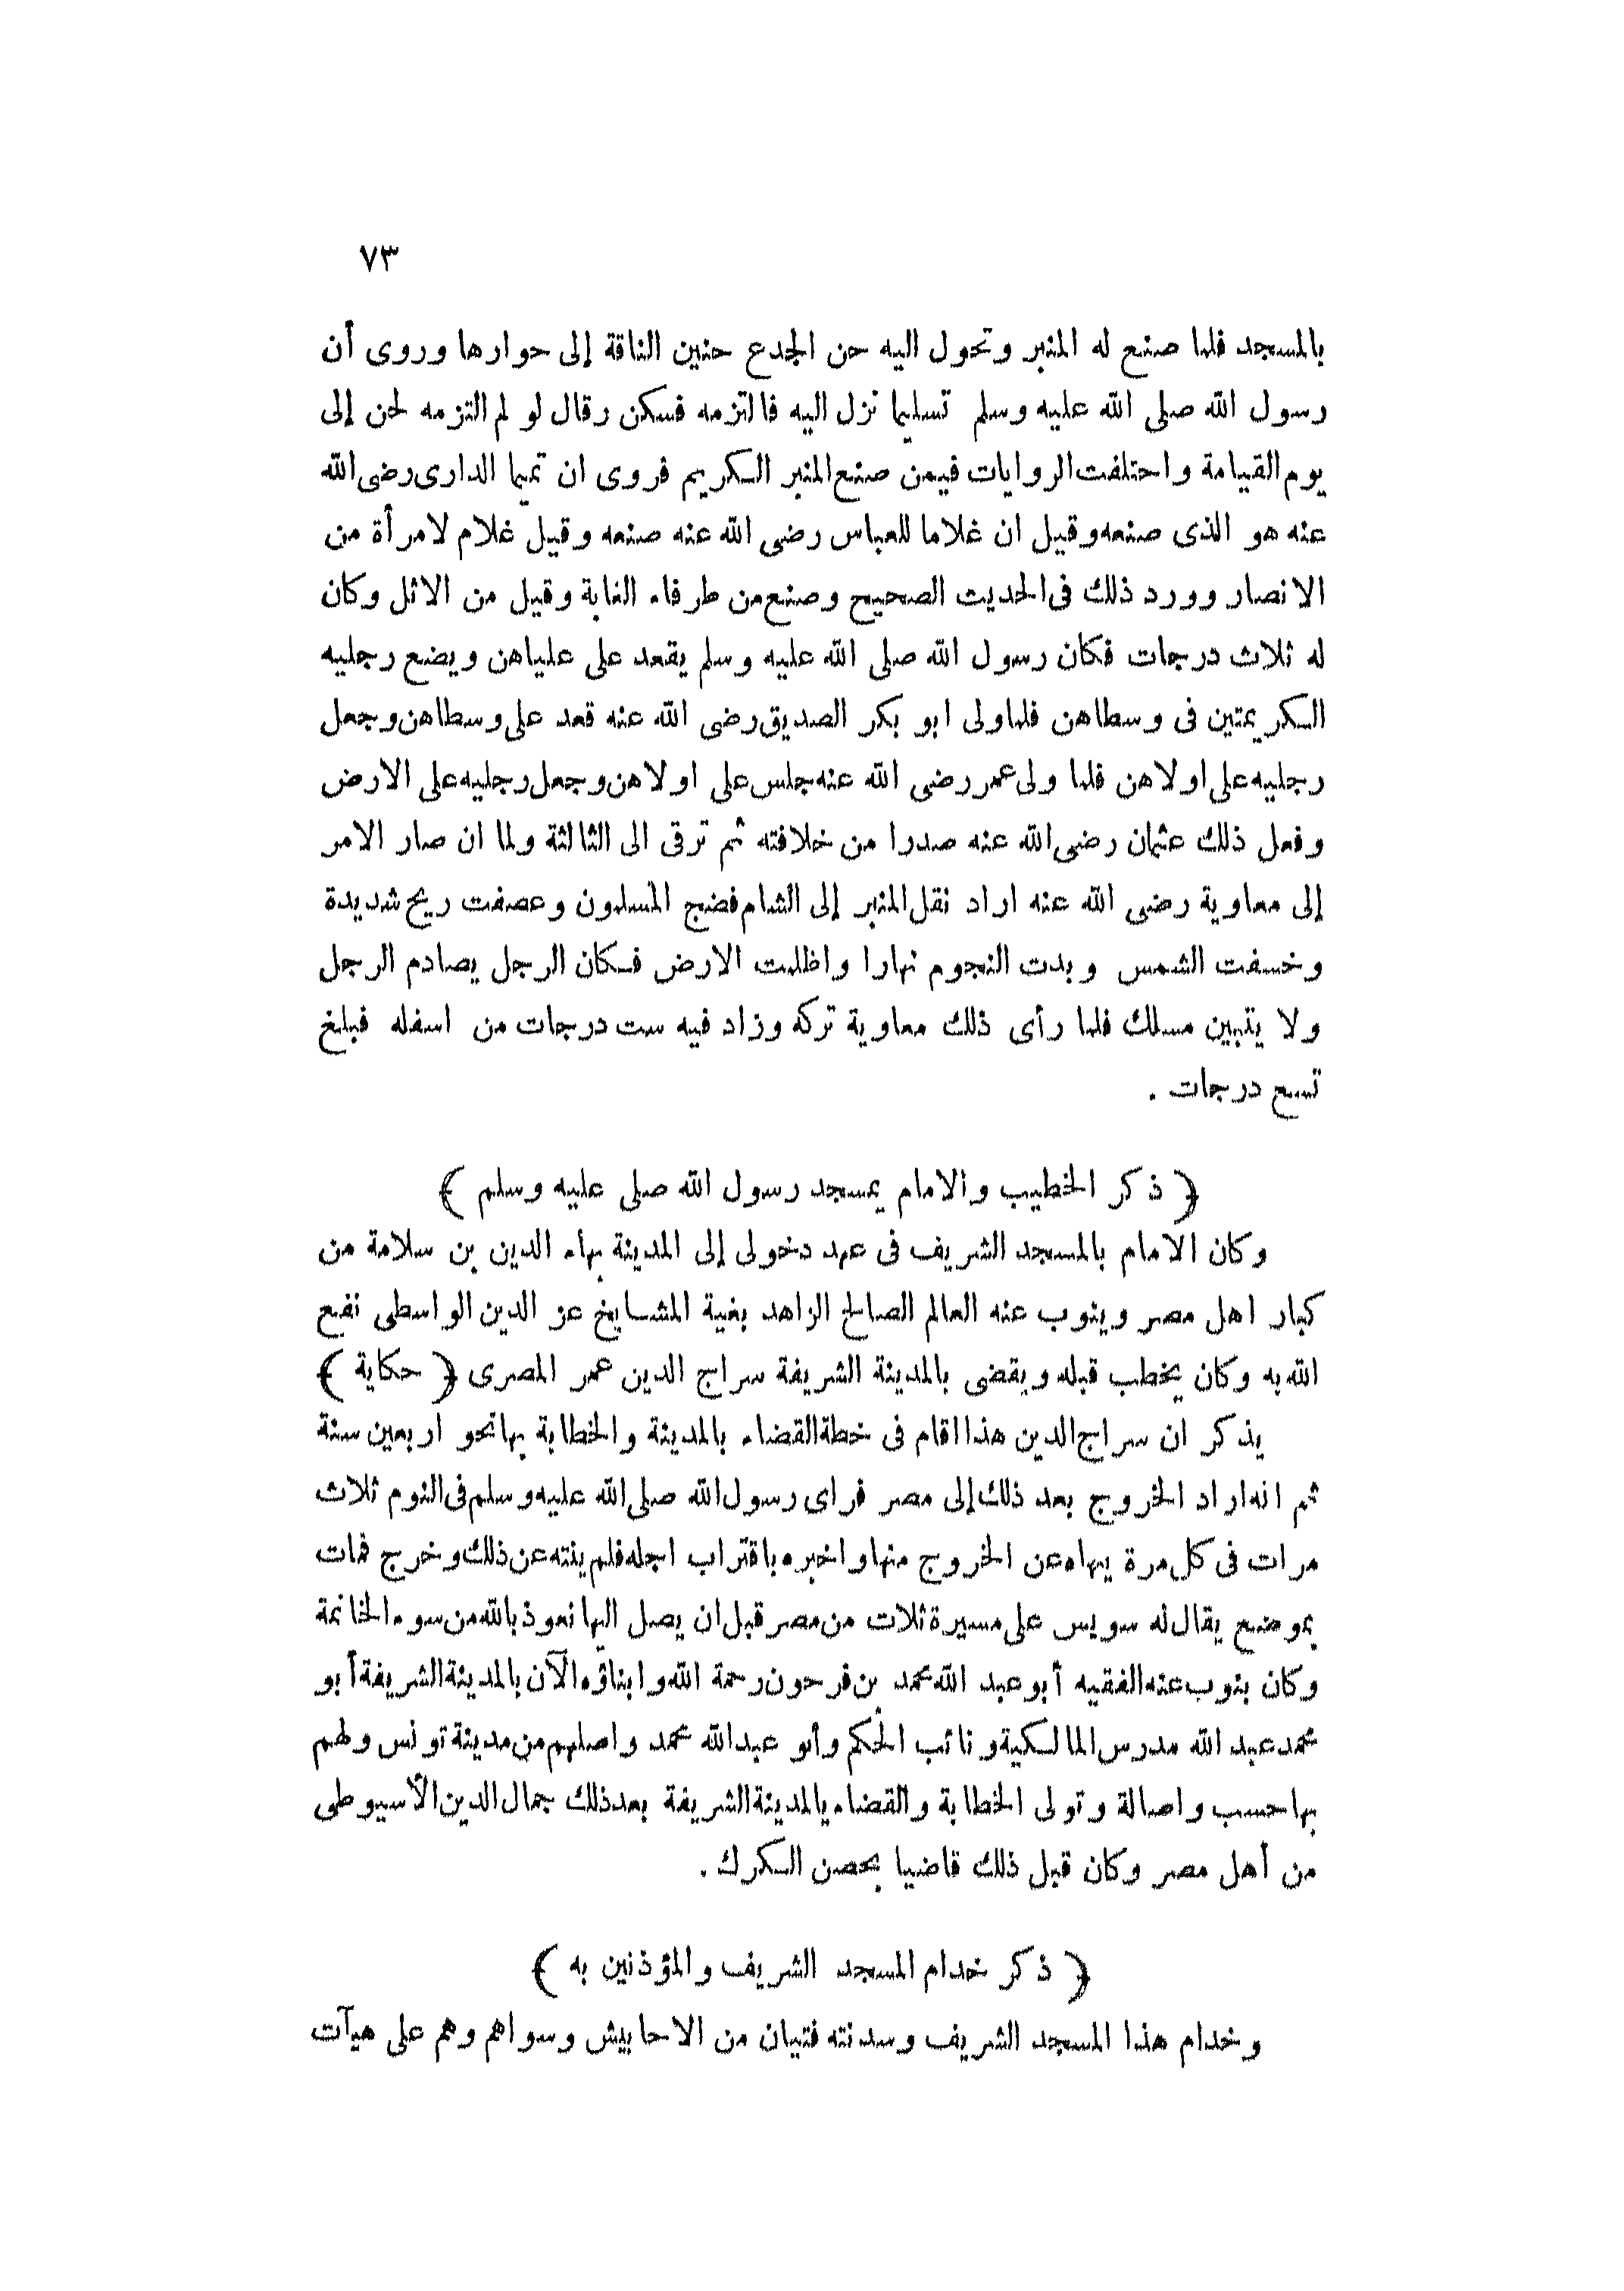 ٧٣
بالمسجد فلما صنع له المنبر وتحول اليه حن الجدع حنين الناقة إلى حوارها وروى أن
رسول الله صلى الله عليه وسلم تسليما نزل اليه فالتزمه فسكن رقال لو لم التزمه لحن إلى
يوم القيامة واختلفت الروايات فيمن صنع المنبر الكريم فروى ان تميما الدارى رضى الله
عنه هو الذى صنعه وقيل ان غلاما للعباس رضى الله عنه صنعه وقيل غلام لامرأة من
الانصار وورد ذلك فى الحديث الصحيح وصنع من طرفاء الغابة وقيل من الاثل وكان
له ثلاث درجات فكان رسول الله صلى الله عليه وسلم يقعد على علياهن ويضع رجليه
الكريمتين فى وسطاهن فلما ولى ابو بكر الصديق رضى الله عنه قعد على وسطاهن وجعل
رجليه على اولاهن فلما ولى عمر رضى الله عنه جلس على اولاهن وجعل رجليه على الارض
وفعل ذلك عثمان رضى الله عنه صدرا من خلافته ثم ترقى الى الثالثة ولما ان صار الامر
إلى معاوية رضى الله عنه اراد نقل المنبر إلى الشام فضج المسلمون وعصفت ريح شديدة
وخسفت الشمس وبدت النجوم نهارا واظلمت الارض فكان الرجل يصادم الرجل
ولا يتبين مسلك فلما رأى ذلك معاوية تركه وزاد فيه ست درجات من اسفله فبلغ
تسع درجات .
﴿ ذكر الخطيب والامام بمسجد رسول الله صلى عليه وسلم ﴾
وكان الامام بالمسجد الشريف فى عهد دخولى إلى المدينة بهاء الدين بن سلامة من
كبار اهل مصر وينوب عنه العالم الصالح الزاهد بغية المشايخ عز الدين الواسطى نفع
الله به وكان يخطب قبله ويقضى بالمدينة الشريفة سراج الدين عمر المصرى ﴿ حكاية ﴾
يذكر ان سراج الدين هذا اقام فى خطة القضاء بالمدينة والخطابة بها نحو اربعين سنة
ثم انه اراد الخروج بعد ذلك إلى مصر فراى رسول الله صلى الله عليه وسلم فى النوم ثلاث
مرات فى كل مرة ينهاه عن الخروج منها واخبره باقتراب اجله فلم ينته عن ذلك وخرج فمات
بموضع يقال له سويس على مسيرة ثلاث من مصر قبل ان يصل اليها نعوذ بالله من سوء الخاتمة
وكان ينوب عنه الفقيه أبو عبد الله محمد بن فرحون رحمة الله وابناؤه الآن بالمدينة الشريفة أبو
محمد عبد الله مدرس المالكية ونائب الحكم وأبو عبد الله محمد واصلهم من مدينة تونس ولهم
بها حسب واصالة وتولى الخطابة والقضاء بالمدينة الشريفة بعد ذلك جمال الدين الأسيوطى
من أهل مصر وكان قبل ذلك قاضيا بحصن الكرك .
﴿ ذكر خدام المسجد الشريف والمؤذنين به ﴾
وخدام هذا المسجد الشريف وسدنته فتيان من الاحابيش وسواهم وهم على هيآت